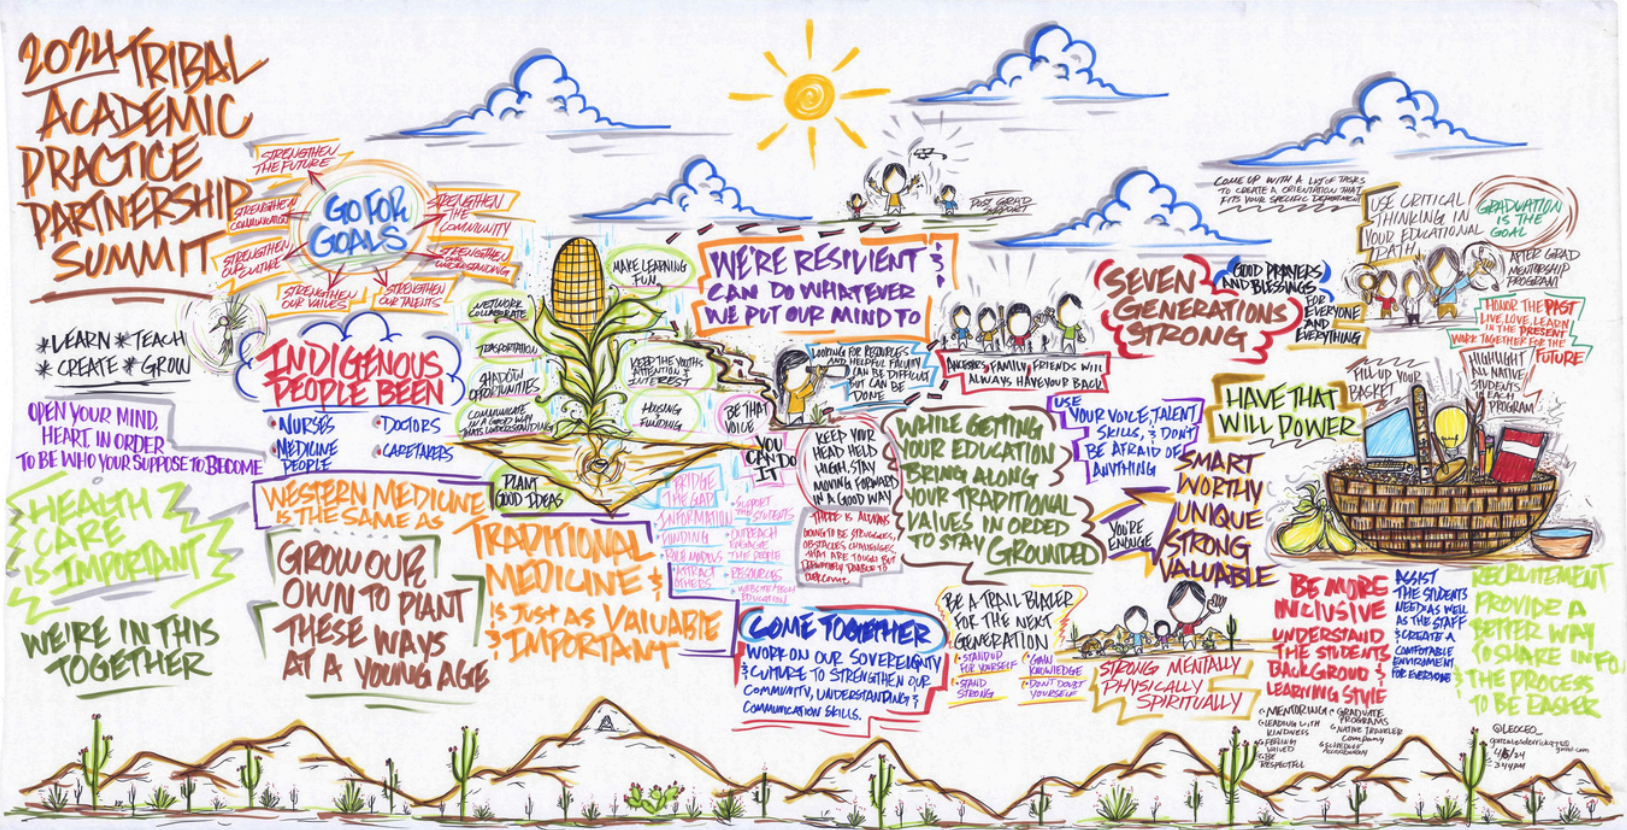 2024 TRIBAL
ACADEMIC
PRACTICE
PARTNERSHIP
SUMMIT
*LEARN *TEACH
*CREATE *GROW
OPEN YOUR MIND,
HEART, IN ORDER
TO BE WHO YOUR SUPPOSE TO BECOME
HEALTH
CARE
IS IMPORTANT
WE'RE IN THIS
TOGETHER
GO FOR
GOALS
STRENGTHEN
THE FUTURE
STRENGTHEN
COMMUNICATION
STRENGTHEN
OUR CULTURE
STRENGTHEN
OUR VALUES
STRENGTHEN
OUR TALENTS
STRENGTHEN
OUR
UNDERSTANDING
STRENGTHEN
THE
COMMUNITY
INDIGENOUS
PEOPLE BEEN
NURSES
DOCTORS
MEDICINE
PEOPLE
CARETAKERS
WESTERN MEDICINE
IS THE SAME AS
TRADITIONAL
MEDICINE &
IS JUST AS VALUABLE
& IMPORTANT
GROW OUR
OWN TO PLANT
THESE WAYS
AT A YOUNG AGE
MAKE LEARNING
FUN
NETWORK
COLLABORATE
TRASPORTATION
SHADOW
OPPORTUNITIES
COMMUNICATE
IN A GOOD WAY
THATS UNDERSTANDING
KEEP THE YOUTHS
ATTENTION &
INTEREST
HOUSING
&
FUNDING
PLANT
GOOD IDEAS
BRIDGE
THE GAP
INFORMATION
FUNDING
ROLE MODELS
ATTRACT
OTHERS
SUPPORT
THE STUDENTS
OUTREACH
ENGAGE
THE PEOPLE
RESOURCES
WEBSITE/TECH
EDUCATION
BE THAT
VOICE
YOU
CAN DO
IT
WE'RE RESILIENT &
CAN DO WHATEVER
WE PUT OUR MIND TO
POST GRAD
SUPPORT
LOOKING FOR RESOURCES
AND HELPFUL FACULTY
CAN BE DIFFICULT
BUT CAN BE
DONE
KEEP YOUR
HEAD HELD
HIGH, STAY
MOVING FORWARD
IN A GOOD WAY
THERE IS ALWAYS
GOING TO BE STRUGGLES,
OBSTACLES CHALLENGES,
THAT ARE TOUGH BUT
DEFINITELY DOABLE TO
OVERCOME
COME TOGETHER
WORK ON OUR SOVEREIGNTY
& CULTURE TO STRENGTHEN OUR
COMMUNITY, UNDERSTANDING &
COMMUNICATION SKILLS.
ANCESTORS, FAMILY, FRIENDS WILL
ALWAYS HAVE YOUR BACK
WHILE GETTING
YOUR EDUCATION
BRING ALONG
YOUR TRADITIONAL
VALUES IN ORDED
TO STAY GROUNDED
BE A TRAIL BLAZER
FOR THE NEXT
GENERATION
STAND UP
FOR YOURSELF
STAND
STRONG
GAIN
KNOWLEDGE
DON'T DOUBT
YOURSELF
SEVEN
GENERATIONS
STRONG
GOOD PRAYERS
AND BLESSINGS
FOR
EVERYONE
AND
EVERYTHING
USE
YOUR VOICE, TALENT
SKILLS, & DON'T
BE AFRAID OF
ANYTHING
YOU'RE
ENOUGE
SMART
WORTHY
UNIQUE
STRONG
VALUABLE
STRONG MENTALLY
PHYSICALLY
SPIRITUALLY
COME UP WITH A LIST OF TASKS
TO CREATE A ORIENTATION THAT
FITS YOUR SPECIFIC DEPARTMENT
USE CRITICAL
THINKING IN
YOUR EDUCATIONAL
PATH
GRADUATION
IS THE
GOAL
AFTER GRAD
MENTORSHIP
PROGRAM
HONOR THE PAST
LIVE, LOVE, LEARN
IN THE PRESENT
WORK TOGETHER FOR THE
FUTURE
HIGHLIGHT
ALL NATIVE
STUDENTS
IN EACH
PROGRAM
FILL UP YOUR
BASKET
HAVE THAT
WILL POWER
BE MORE
INCLUSIVE
UNDERSTAND
THE STUDENTS
BACKGROUD &
LEARNING STYLE
MENTORING
LEADING WITH
KINDNESS
FEELING
VALUED
BE
RESPECTFUL
GRADUATE
PROGRAMS
NATIVE TRAVELER
COMPANY
ASSIST
THE STUDENTS
NEED AS WELL
AS THE STAFF
& CREATE A
COMFOTABLE
ENVIROMENT
FOR EVERYONE
RECRUITEMENT
PROVIDE A
BETTER WAY
TO SHARE INFO
& THE PROCESS
TO BE EASIER
@LEOCEO_
4/5/24
3:44PM